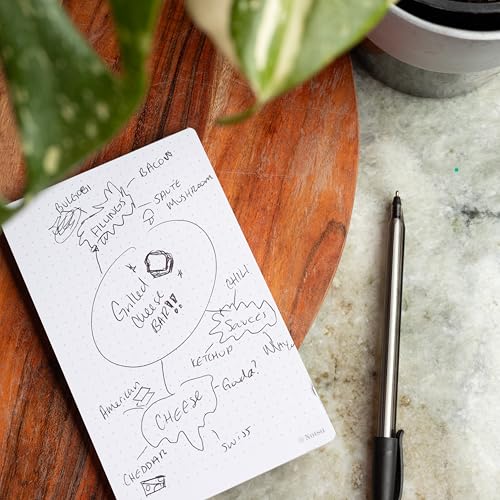 BULGOGI
BACON
FILLINGS
SAUTE
MUSHROOM
Grilled
Cheese
BAR!!
CHILI
SAUCES
KETCHUP
American
CHEESE
Gouda?
CHEDDAR
SWISS